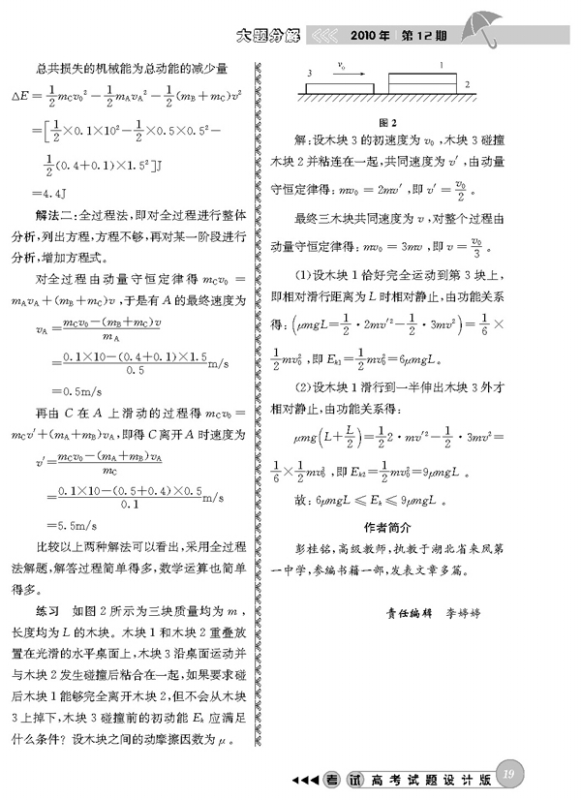 大题分解 <<< 2010年 第12期
总共损失的机械能为总动能的减少量
ΔE = 1/2 m_C v₀² − 1/2 m_A v_A² − 1/2 (m_B + m_C)v²
= [1/2 × 0.1×10² − 1/2 × 0.5×0.5² −
1/2 (0.4+0.1)×1.5²]J
=4.4J
解法二:全过程法,即对全过程进行整体
分析,列出方程,方程不够,再对某一阶段进行
分析,增加方程式。
对全过程由动量守恒定律得 m_C v₀ =
m_A v_A + (m_B + m_C)v ,于是有 A 的最终速度为
v_A = (m_C v₀ − (m_B + m_C)v) / m_A
= (0.1×10−(0.4+0.1)×1.5) / 0.5 m/s
=0.5m/s
再由 C 在 A 上滑动的过程得 m_C v₀ =
m_C v′ + (m_A + m_B)v_A ,即得 C 离开 A 时速度为
v′ = (m_C v₀ − (m_A + m_B)v_A) / m_C
= (0.1×10−(0.5+0.4)×0.5) / 0.1 m/s
=5.5m/s
比较以上两种解法可以看出,采用全过程
法解题,解答过程简单得多,数学运算也简单
得多。
练习 如图 2 所示为三块质量均为 m ,
长度均为 L 的木块。木块 1 和木块 2 重叠放
置在光滑的水平桌面上,木块 3 沿桌面运动并
与木块 2 发生碰撞后粘合在一起,如果要求碰
后木块 1 能够完全离开木块 2,但不会从木块
3 上掉下,木块 3 碰撞前的初动能 E_k 应满足
什么条件? 设木块之间的动摩擦因数为 μ 。
3 v₀ 1
2
图 2
解:设木块 3 的初速度为 v₀ ,木块 3 碰撞
木块 2 并粘连在一起,共同速度为 v′ ,由动量
守恒定律得: mv₀ = 2mv′ ,即 v′ = v₀/2 。
最终三木块共同速度为 v ,对整个过程由
动量守恒定律得: mv₀ = 3mv ,即 v = v₀/3 。
(1)设木块 1 恰好完全运动到第 3 块上,
即相对滑行距离为 L 时相对静止,由功能关系
得: (μmgL = 1/2 · 2mv′² − 1/2 · 3mv²) = 1/6 ×
1/2 mv₀² ,即 E_k1 = 1/2 mv₀² = 6μmgL。
(2)设木块 1 滑行到一半伸出木块 3 外才
相对静止,由功能关系得:
μmg(L + L/2) = 1/2 2 · mv′² − 1/2 · 3mv² =
1/6 × 1/2 mv₀² ,即 E_k2 = 1/2 mv₀² = 9μmgL 。
故: 6μmgL ⩽ E_k ⩽ 9μmgL 。
作者简介
彭桂铭,高级教师,执教于湖北省来凤第
一中学,参编书籍一部,发表文章多篇。
责任编辑 李婷婷
◀◀◀ 考 试 高考试题设计版 19